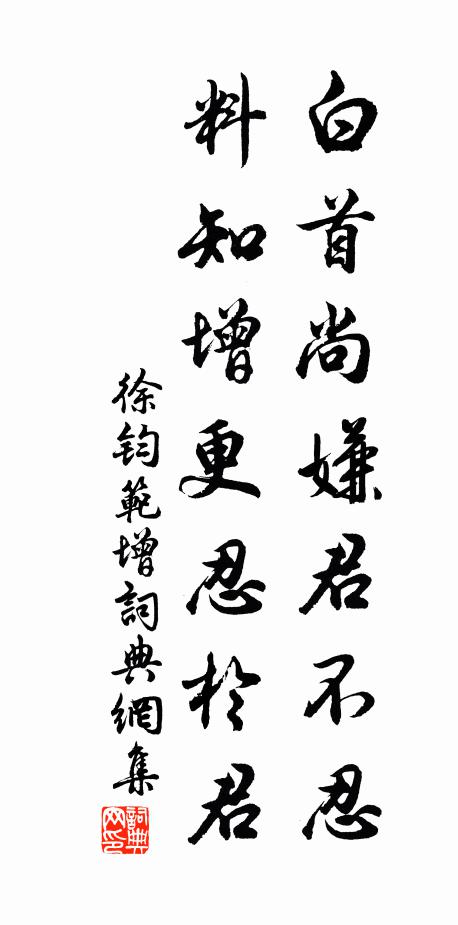 白首尚嫌君不忍
料知增更忍於君
徐鈞範增詞典網集
詞典網印